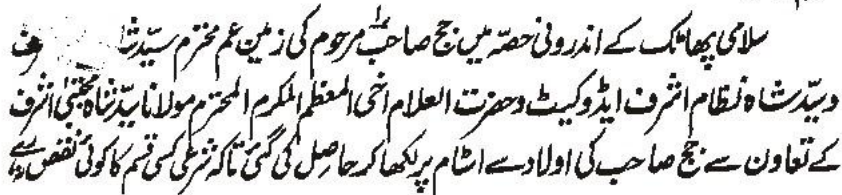 سلامی پھاٹک کے اندرونی حصّہ میں جج صاحب مرحوم کی زمین عم محترم سیّد شاہ
وسیّد شاہ نظام اشرف ایڈوکیٹ وحضرت العلام اخی المعظم المکرم المحترم مولانا سیّد شاہ مجتبیٰ اشرف
کے تعاون سے جج صاحب کی اولاد سے اسٹام پر لکھا کر حاصل کی گئی تاکہ شرعی کسی قسم کا کوئی نقص